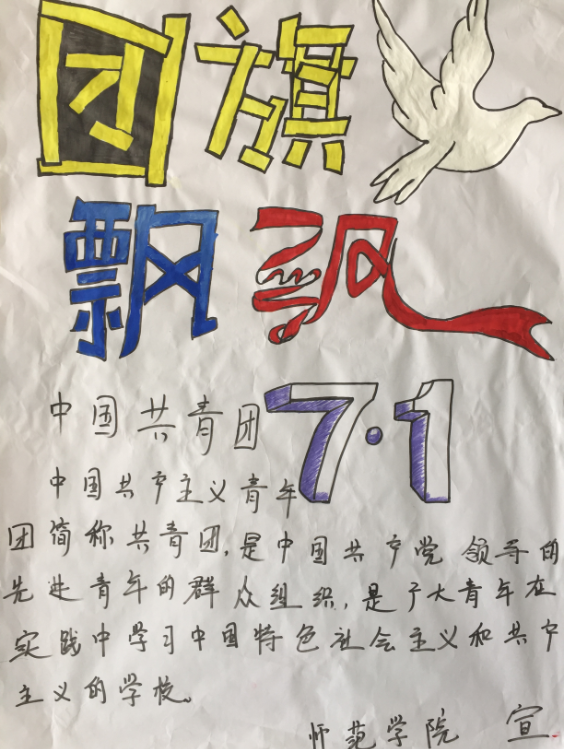 团旗
飘飘
中国共青团 7·1
中国共产主义青年
团简称共青团,是中国共产党领导的
先进青年的群众组织,是广大青年在
实践中学习中国特色社会主义和共产
主义的学校。
师范学院 宣